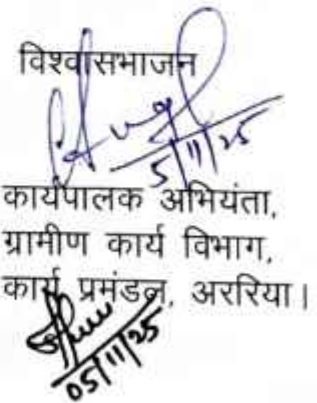 विश्वासभाजन
5/11/25
कार्यपालक अभियंता,
ग्रामीण कार्य विभाग,
कार्य प्रमंडल, अररिया।
05/11/25